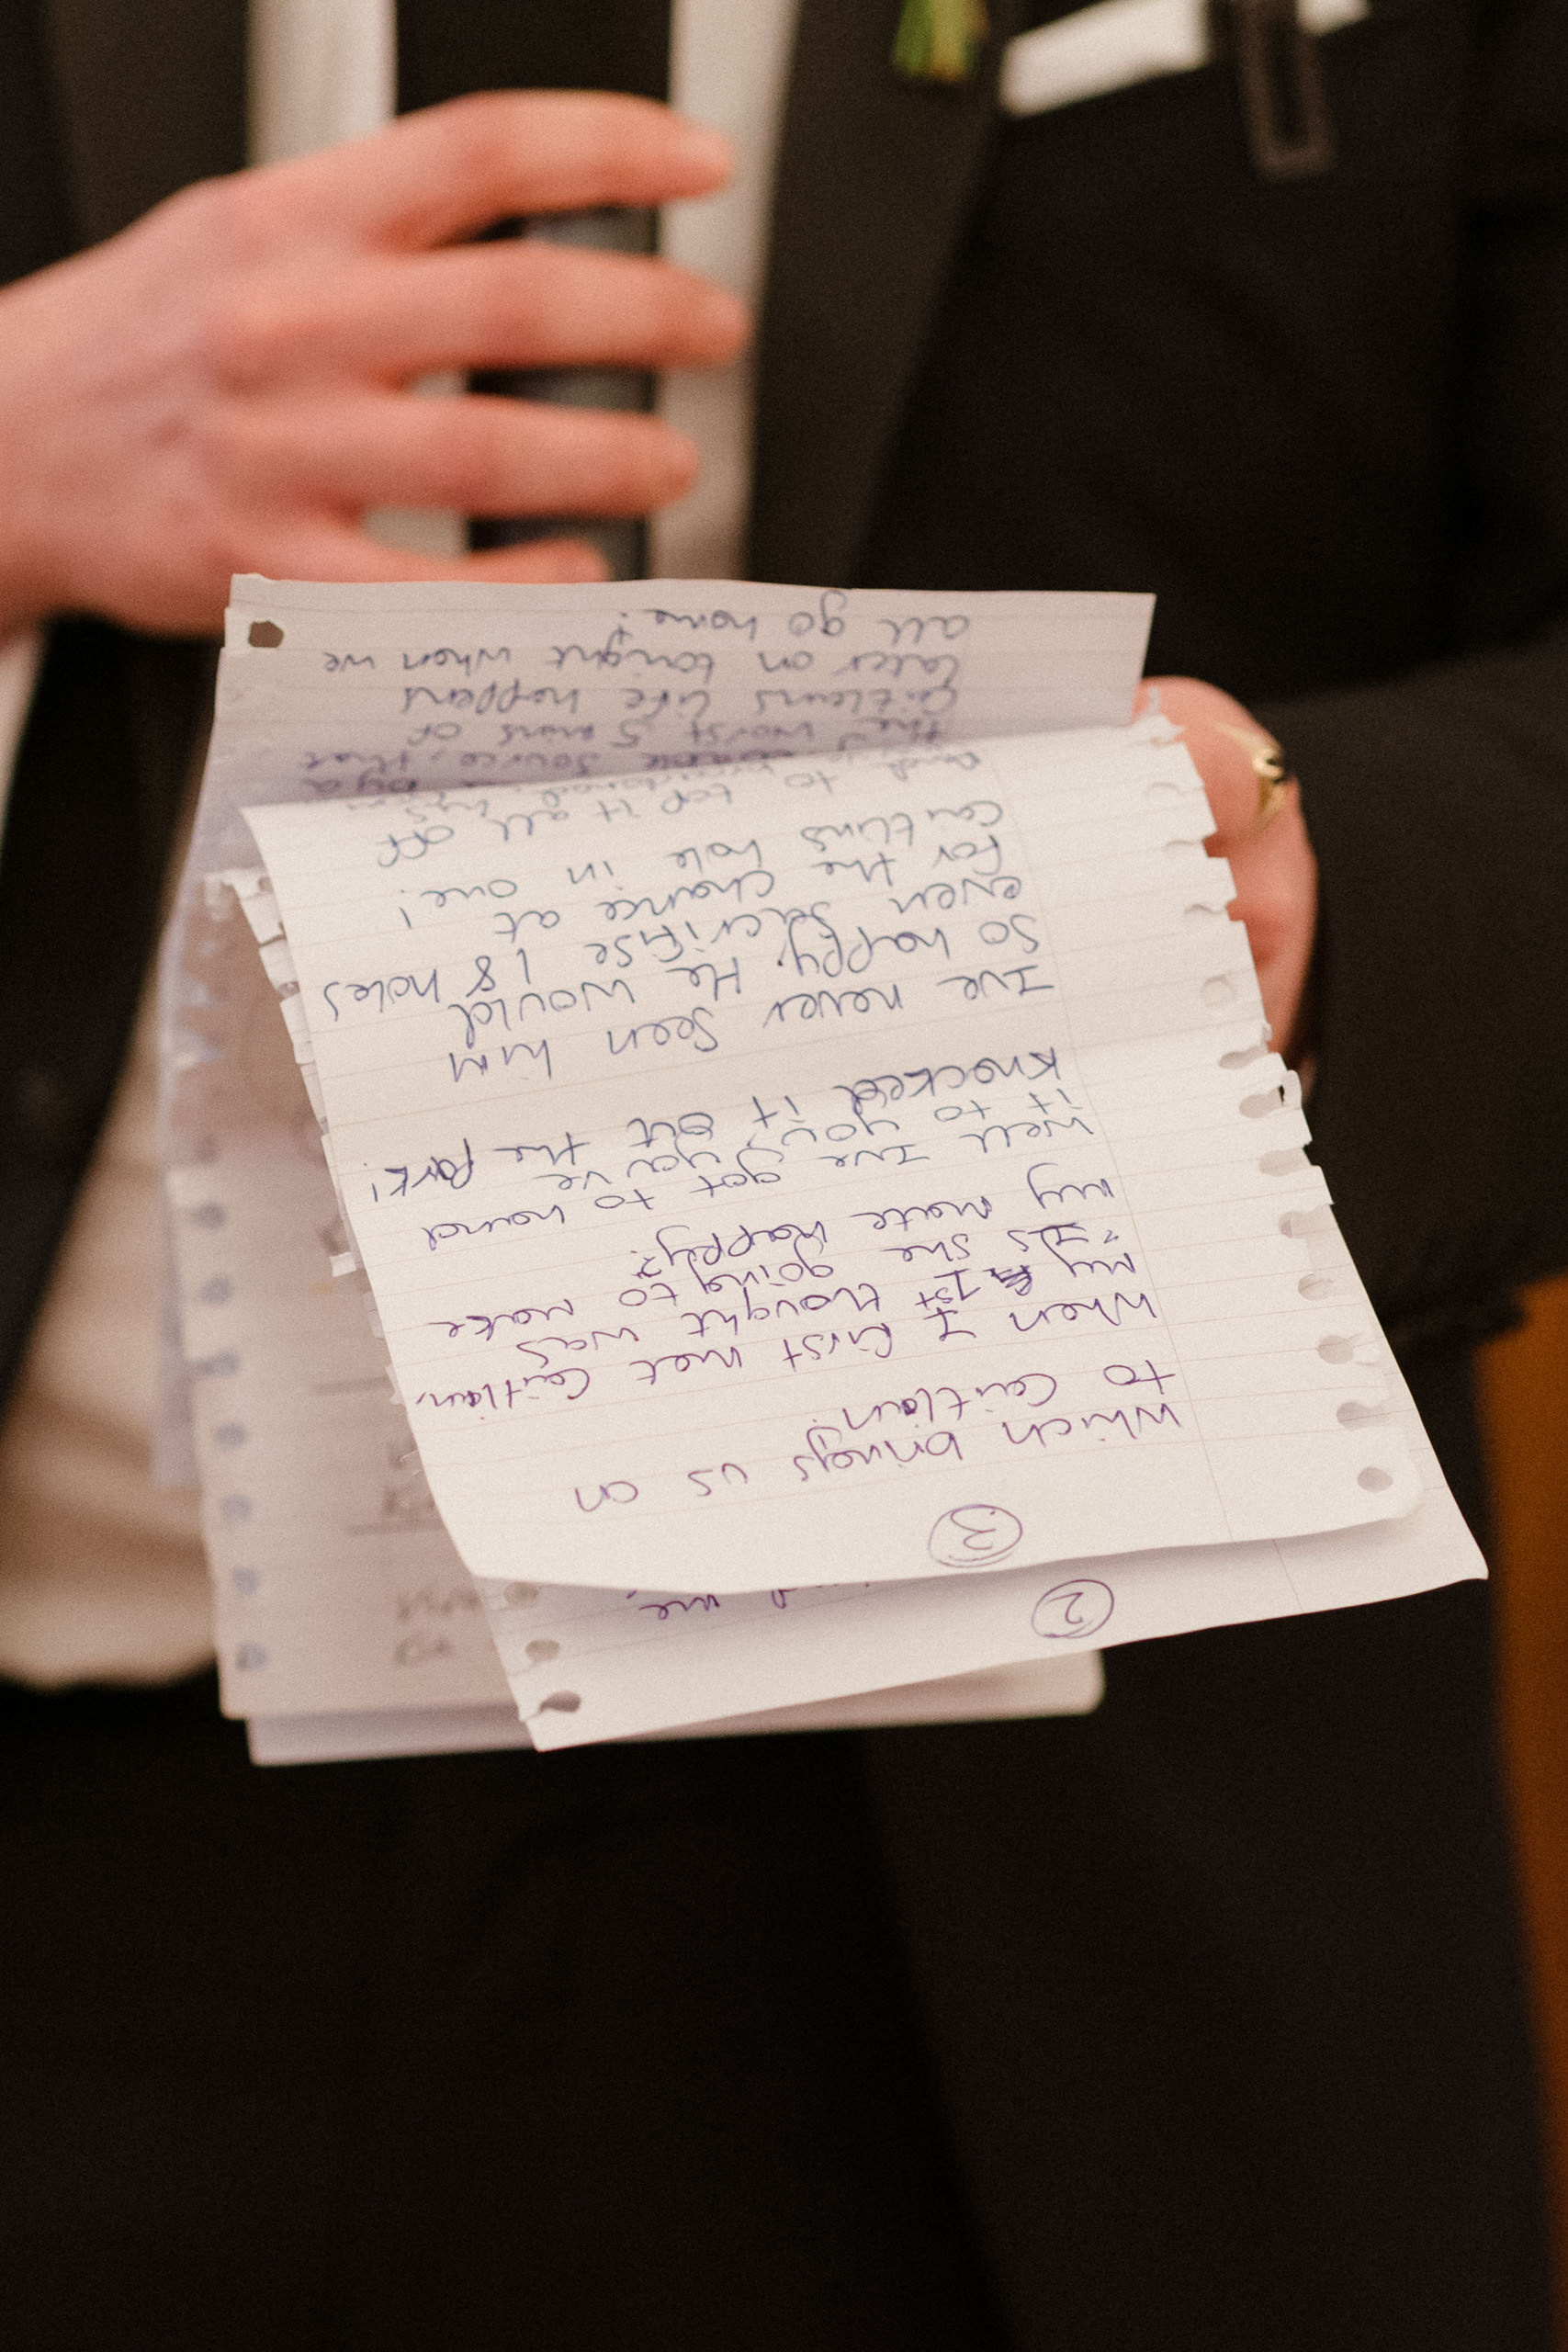 3
Which brings us on
to Caitlain!
When I first met Caitlain,
my 1st thought was
"Is she going to make
my mate happy?"
Well Ive got to hand
it to you, you've
knocked it out the park!
Ive never seen him
so happy. He would
even sacrifise 18 holes
for the chance at
Caitlins hole in one!
And to top it all off
by a
source, that
the worst 5 mins of
Caitlains life happens
later on tonight when we
all go home!
2
me,